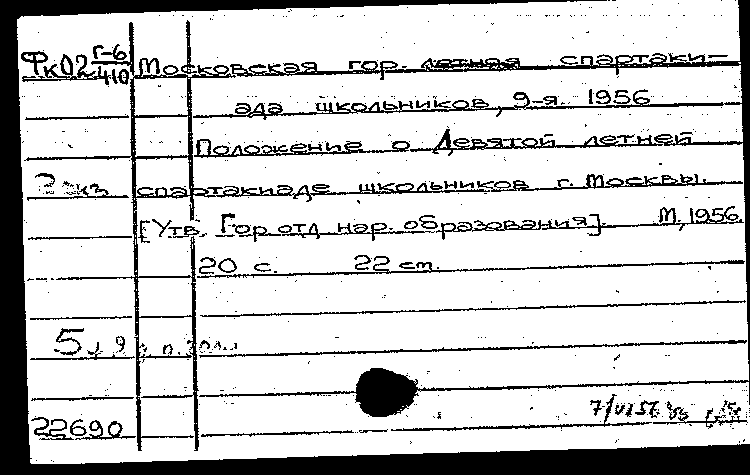 Фк02 Г-6/410 Московская гор. летная спартаки-
ада школьников, 9-я. 1956
Положение о Девятой летней
спартакиаде школьников г. Москвы.
[Утв. Гор отд нар. образования]. М, 1956.
20 с. 22 см.
22690